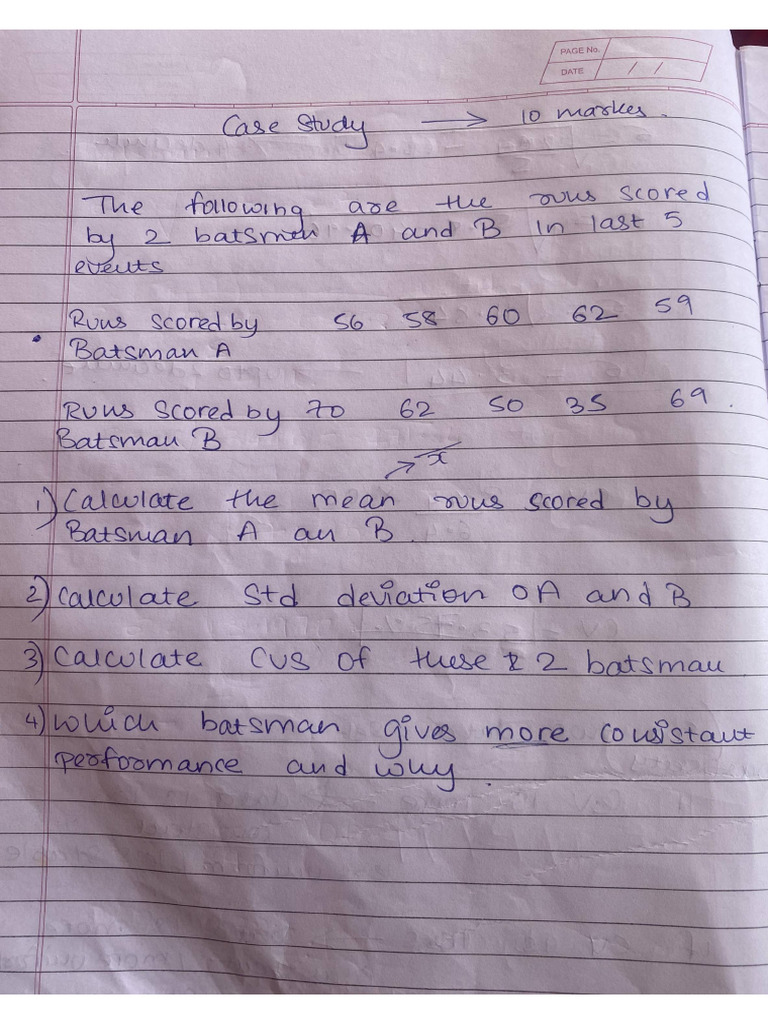 PAGE No.
DATE / /
Case Study → 10 markes.
The following are the runs scored
by 2 batsmen A and B in last 5
events
Runs scored by 56 58 60 62 59
Batsman A
Runs scored by 70 62 50 35 69.
Batsman B
→ x̄
1) Calculate the mean runs scored by
Batsman A an B.
2) Calculate Std deviation OA and B
3) Calculate CVS of these 2 batsman
4) which batsman gives more consistant
performance and why.